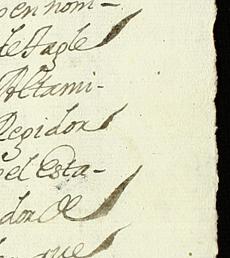 en nom-
de Tagle
Altami-
Regidor
el Esta-
dor de
que